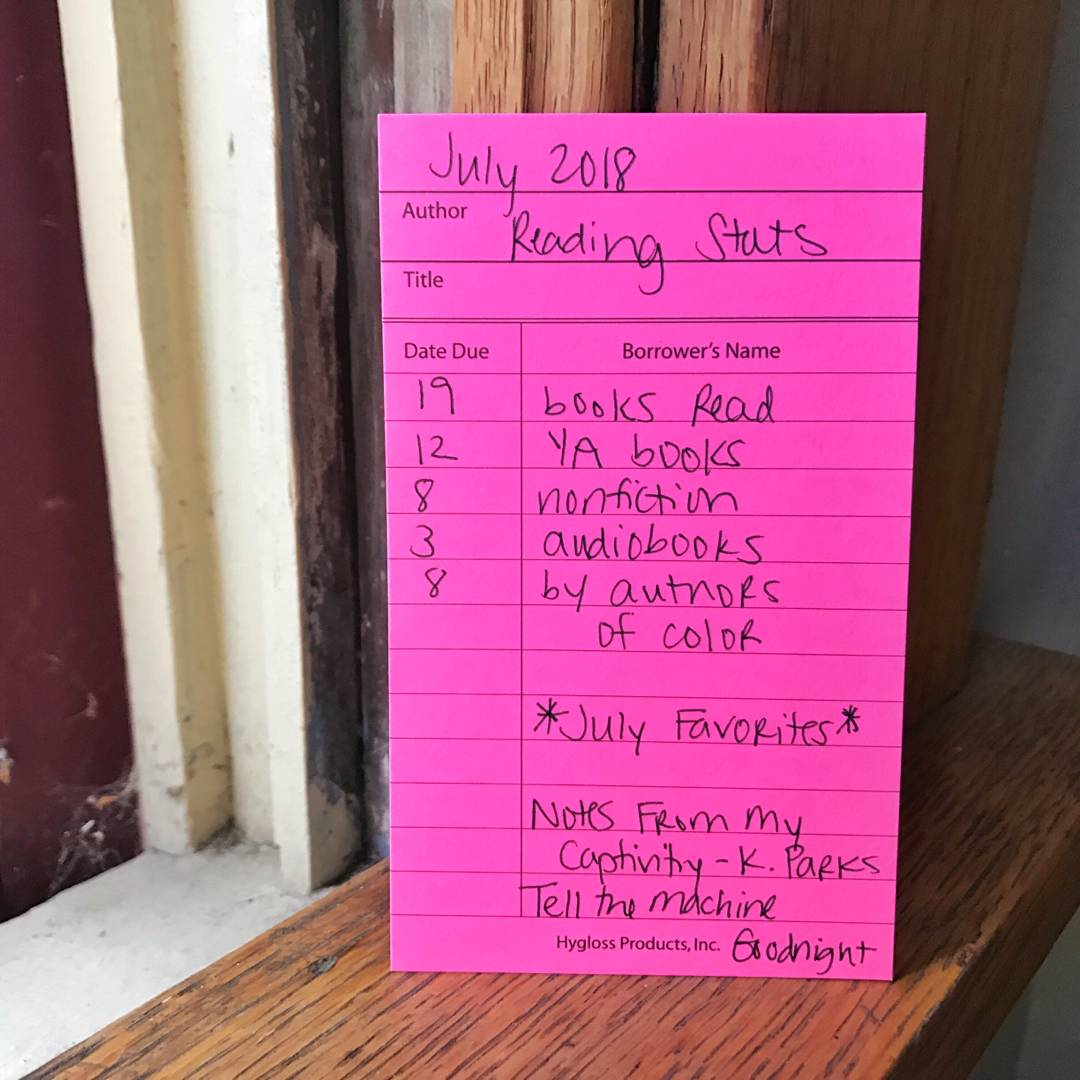 July 2018
Author
Reading Stats
Title
Date Due Borrower's Name
19 books Read
12 YA books
8 nonfiction
3 audiobooks
8 by authors
of color
*July Favorites*
Notes From My
Captivity - K. Parks
Tell the Machine
Hygloss Products, Inc. Goodnight